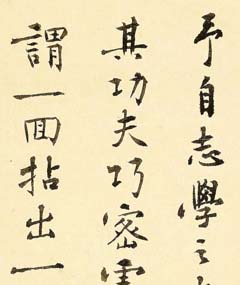 予自志學之
其功夫巧密
謂一回拈出一